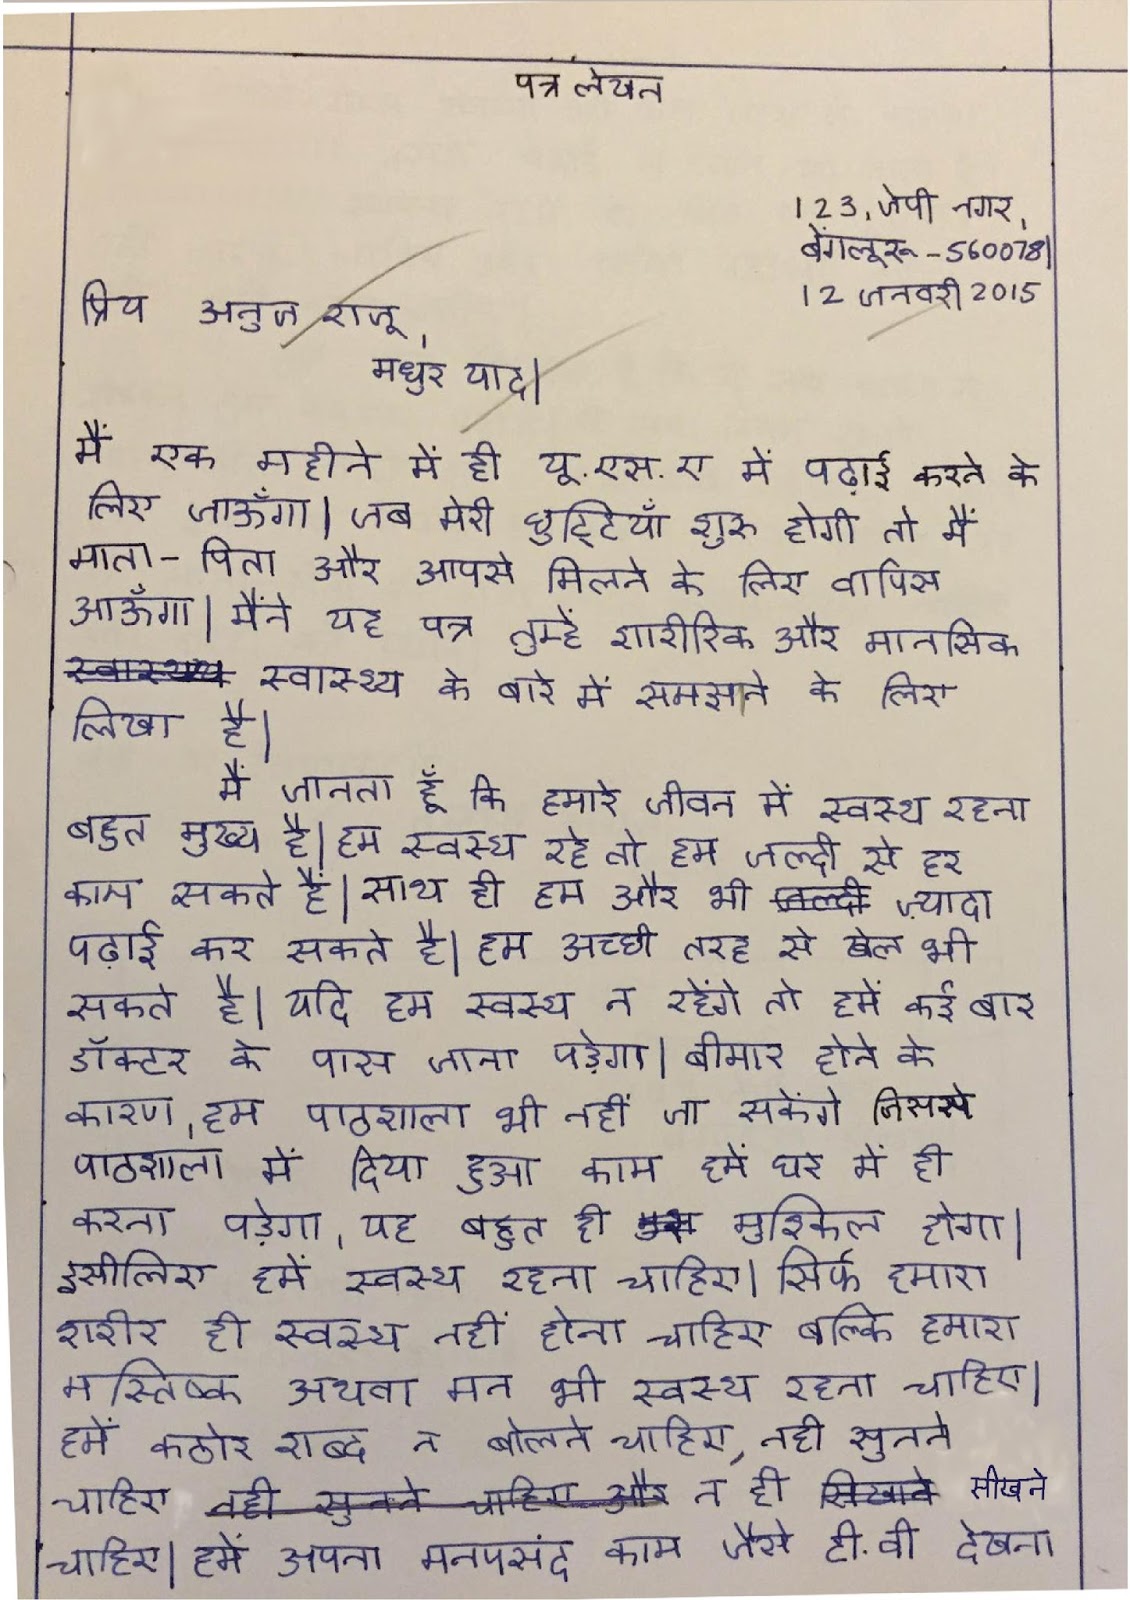 पत्र लेखन
123, जेपी नगर,
बेंगलूरू - 560078।
12 जनवरी 2015
प्रिय अनुज राजू,
मधुर याद।
मैं एक महीने में ही यू.एस.ए में पढ़ाई करने के
लिए जाऊँगा। जब मेरी छुट्टियाँ शुरू होगी तो मैं
माता - पिता और आपसे मिलने के लिए वापिस
आऊँगा। मैंने यह पत्र तुम्हें शारीरिक और मानसिक
स्वास्थ्य स्वास्थ्य के बारे में समझाने के लिए
लिखा है।
मैं जानता हूँ कि हमारे जीवन में स्वस्थ रहना
बहुत मुख्य है। हम स्वस्थ रहे तो हम जल्दी से हर
काम सकते हैं। साथ ही हम और भी जल्दी ज़्यादा
पढ़ाई कर सकते है। हम अच्छी तरह से खेल भी
सकते है। यदि हम स्वस्थ न रहेंगे तो हमें कई बार
डॉक्टर के पास जाना पड़ेगा। बीमार होने के
कारण, हम पाठशाला भी नहीं जा सकेंगे जिससे
पाठशाला में दिया हुआ काम हमें घर में ही
करना पड़ेगा, यह बहुत ही मुश्किल होगा।
इसीलिए हमें स्वस्थ रहना चाहिए। सिर्फ हमारा
शरीर ही स्वस्थ नहीं होना चाहिए बल्कि हमारा
मस्तिष्क अथवा मन भी स्वस्थ रहना चाहिए।
हमें कठोर शब्द न बोलने चाहिए, नही सुनने
चाहिए नही सुनने चाहिए और न ही सिखाने सीखने
चाहिए। हमें अपना मनपसंद काम जैसे टी.वी देखना